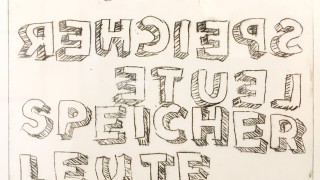 SPEICHER
LEUTE
SPEICHER
LEUTE